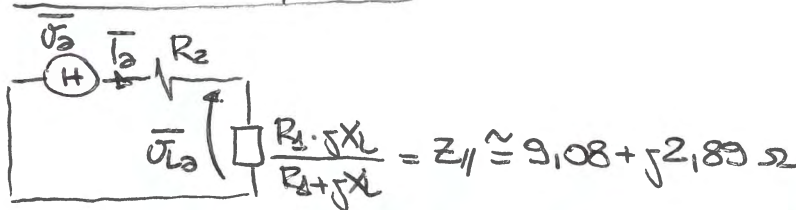 V̅a I̅a R2
H
V̅La R1·jXL / R1+jXL = Z// ≅ 9,08 + j2,89 Ω